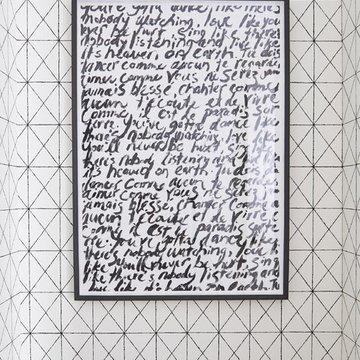 you're gotta dance like there's
nobody watching, love like you
ever be hurt. Sing like there's
nobody listening and live like
it's heaven on earth. Tu dois
danser comme aucun te regarde,
aimer comme vous ne serez
jamais blessé, chanter comme
aucun t'écoute et de vivre
comme il est de paradis sur
terre. You've gotta dance like
there's nobody watching, love like
you'll never be hurt, sing like
there's nobody listening and live like
it's heaven on earth. Tu dois
danser comme aucun te regarde
aimer comme vous ne serez
jamais blessé, chanter comme
aucun t'écoute et de vivre
comme il est de paradis sur te
rre. You've gotta dance like
there's nobody watching, love
like you'll never be hurt, sing
like there's nobody listening and
live like it's heaven on earth. Tu